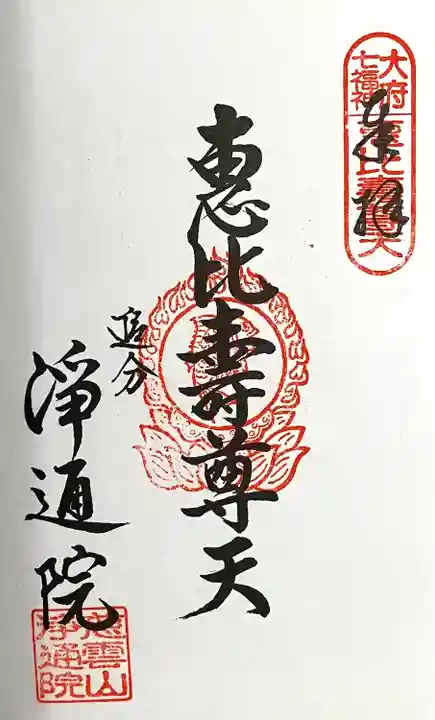 奉拝
大府
七福神
恵比寿尊天
恵比壽尊天
追分
浄通院
慈雲山
浄通院